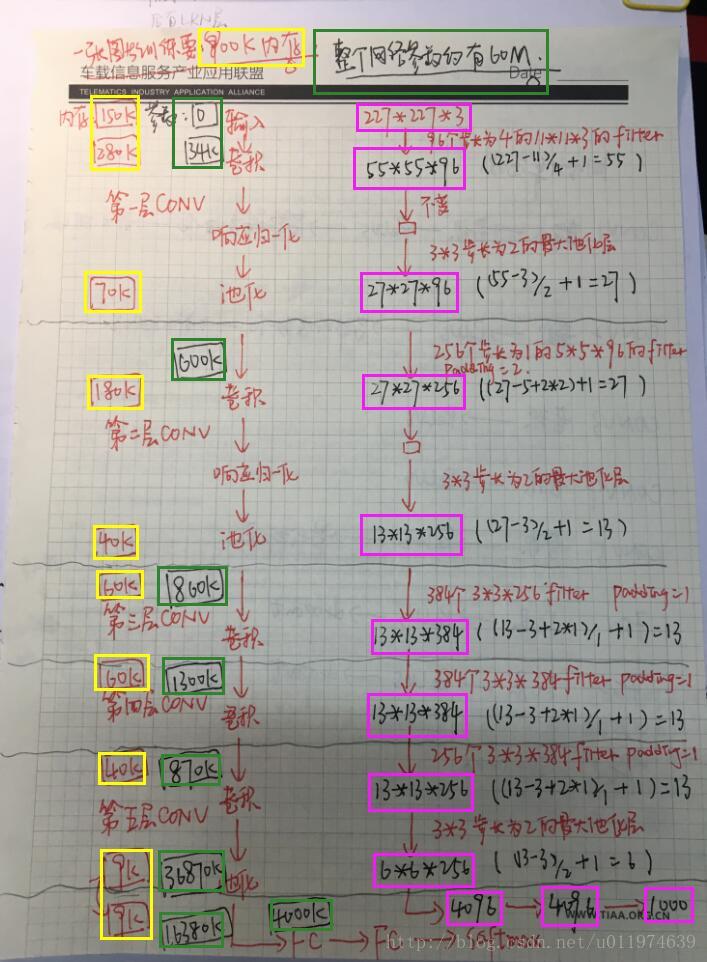 一张图片训练要900K内存 整个网络参数约有60M.
车载信息服务产业应用联盟 Date
TELEMATICS INDUSTRY APPLICATION ALLIANCE
内存:150K 参数:0 输入 227*227*3
96个步长为4的11*11*3的filter
280K 34K 卷积 55*55*96 ((227-11)/4+1=55)
第一层CONV 不变
响应归一化
3*3步长为2的最大池化层
70K 池化 27*27*96 ((55-3)/2+1=27)
256个步长为1的5*5*96的filter
600K padding=2.
180K 卷积 27*27*256 ((27-5+2*2)+1=27)
第二层CONV
响应归一化 3*3步长为2的最大池化层
40K 池化 13*13*256 ((27-3)/2+1=13)
60K 1860K 384个3*3*256filter padding=1
第三层CONV 卷积 13*13*384 ((13-3+2*1)/1+1)=13
60K 1300K 384个3*3*384filter padding=1
第四层CONV 卷积 13*13*384 ((13-3+2*1)/1+1)=13
256个3*3*384filter padding=1
40K 870K 卷积 13*13*256 ((13-3+2*1)/1+1)=13
第五层CONV 3*3步长为2的最大池化层
9K 36870K 池化 6*6*256 ((13-3)/2+1=6)
19K 16380K 4000K 4096 4096 1000
WWW.TIAA.ORG.CN
FC FC softmax
http://blog.csdn.net/u011974639